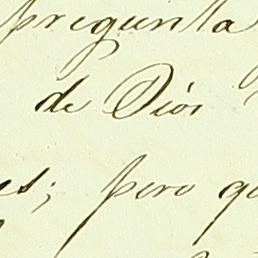 pregunta
de Dios
es; pero qu